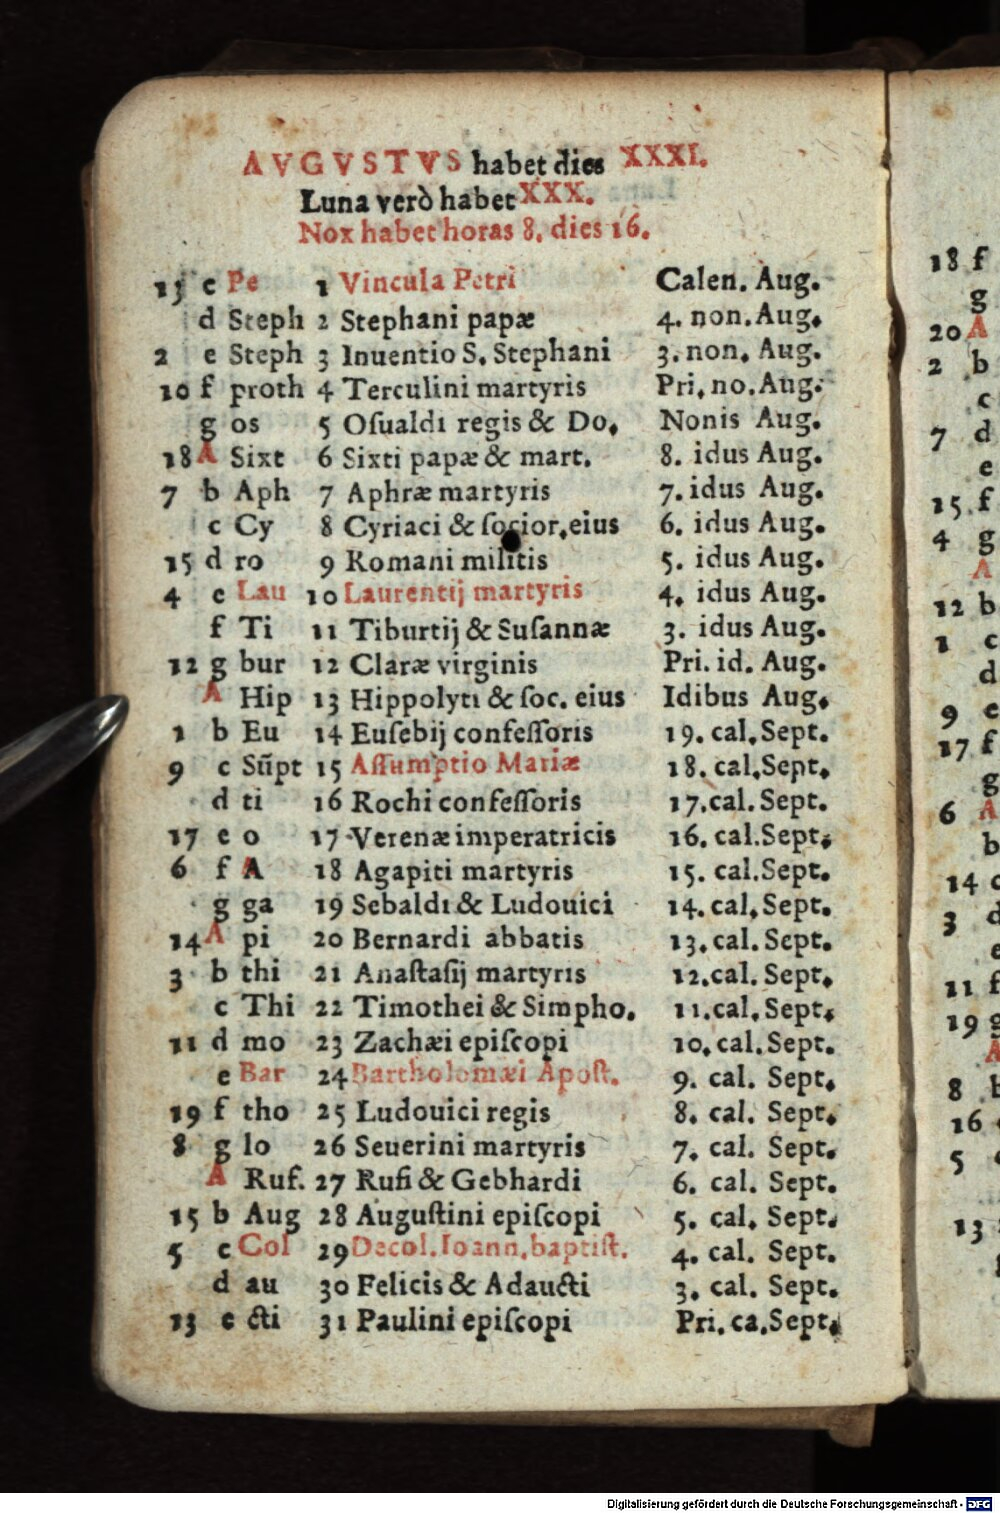 AVGVSTVS habet dies XXXI.
Luna verò habet XXX.
Nox habet horas 8. dies 16.
13 c Pe 1 Vincula Petri Calen. Aug.
d Steph 2 Stephani papæ 4. non. Aug.
2 e Steph 3 Inuentio S. Stephani 3. non. Aug.
10 f proth 4 Terculini martyris Pri. no. Aug.
g os 5 Oſualdi regis & Do. Nonis Aug.
18 A Sixt 6 Sixti papæ & mart. 8. idus Aug.
7 b Aph 7 Aphræ martyris 7. idus Aug.
c Cy 8 Cyriaci & ſocior. eius 6. idus Aug.
15 d ro 9 Romani militis 5. idus Aug.
4 e Lau 10 Laurentij martyris 4. idus Aug.
f Ti 11 Tiburtij & Suſannæ 3. idus Aug.
12 g bur 12 Claræ virginis Pri. id. Aug.
A Hip 13 Hippolyti & ſoc. eius Idibus Aug.
1 b Eu 14 Euſebij confeſſoris 19. cal. Sept.
9 c Sūpt 15 Aſſumptio Mariæ 18. cal. Sept.
d ti 16 Rochi confeſſoris 17. cal. Sept.
17 e o 17 Verenæ imperatricis 16. cal. Sept.
6 f A 18 Agapiti martyris 15. cal. Sept.
g ga 19 Sebaldi & Ludouici 14. cal. Sept.
14 A pi 20 Bernardi abbatis 13. cal. Sept.
3 b thi 21 Anaſtaſij martyris 12. cal. Sept.
c Thi 22 Timothei & Simpho. 11. cal. Sept.
11 d mo 23 Zachæi epiſcopi 10. cal. Sept.
e Bar 24 Bartholomæi Apoſt. 9. cal. Sept.
19 f tho 25 Ludouici regis 8. cal. Sept.
8 g lo 26 Seuerini martyris 7. cal. Sept.
A Ruf. 27 Rufi & Gebhardi 6. cal. Sept.
15 b Aug 28 Auguſtini epiſcopi 5. cal. Sept.
5 c Col 29 Decol. Ioann. baptiſt. 4. cal. Sept.
d au 30 Felicis & Adaucti 3. cal. Sept.
13 e cti 31 Paulini epiſcopi Pri. ca. Sept.
18 f
g
20 A
2 b
c
7 d
e
15 f
4 g
A
12 b
1 c
d
9 e
17 f
g
6 A
b
14 c
3 d
e
11 f
19 g
A
8 b
16
5
13
Digitalisierung gefördert durch die Deutsche Forschungsgemeinschaft - DFG